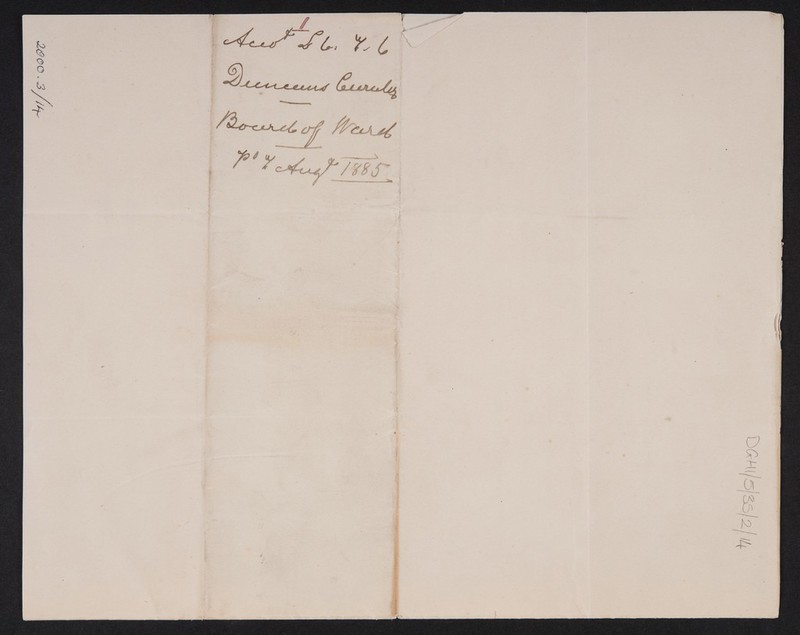 Acct £6. 7. 6
Duncans
Board of Ward
pd 7 Augt 1885
2000.3/14
DGH1/5/3S/2/14